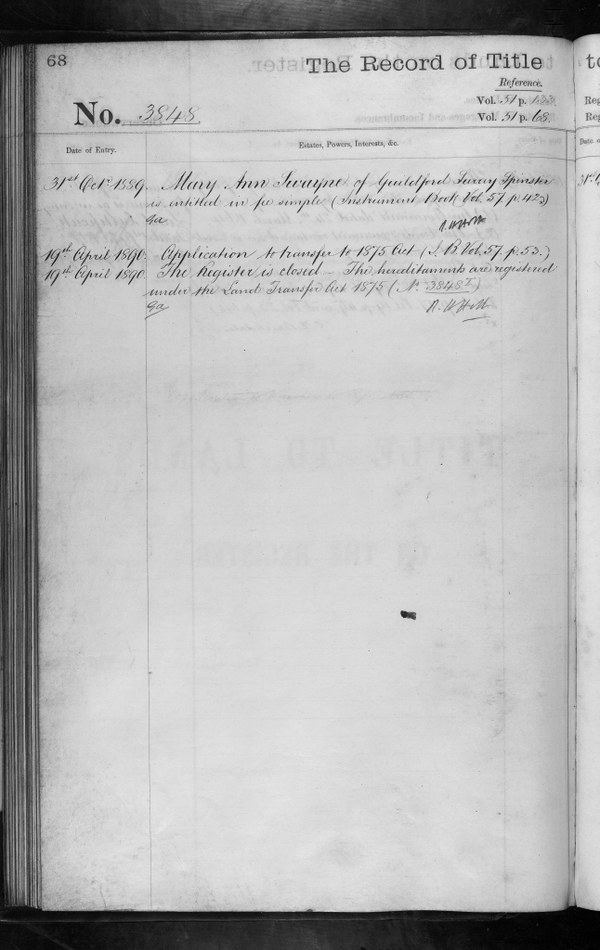 68
The Record of Title
Reference.
Vol. 51 p.
Vol. 51 p. 68
No. 3848.
Date of Entry.
Estates, Powers, Interests, &c.
31st Octr 1889. Mary Ann Swayne of Guildford Surrey Spinster
is entitled in fee simple (Instrument Book Vol. 57 p 423)
19th April 1890. Application to transfer to 1875 Act (I. B. Vol. 57. p. 53.)
19th April 1890 The Register is closed – The hereditaments are registered
under the Land Transfer Act 1875 (No. 3848)
R. W Holt